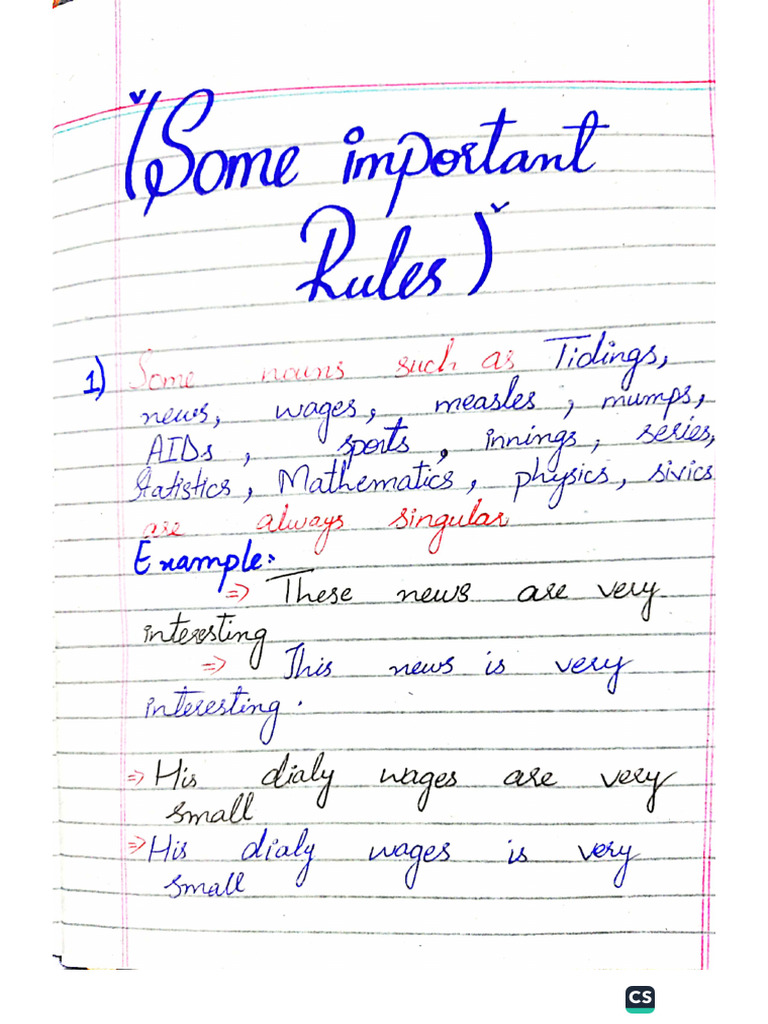 (Some important
Rules)
1) Some nouns such as Tidings,
news, wages, measles, mumps,
AIDs, sports, innings, series,
Statistics, Mathematics, physics, sivics
are always singular
Example:
⇒ These news are very
interesting
⇒ This news is very
interesting.
⇒ His dialy wages are very
small
⇒ His dialy wages is very
small
CS